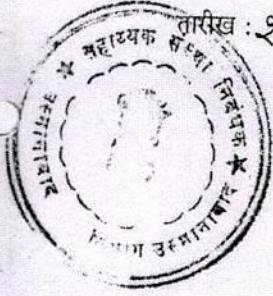 तारीख :
सहाय्यक संस्था निबंधक
विभाग उस्मानाबाद